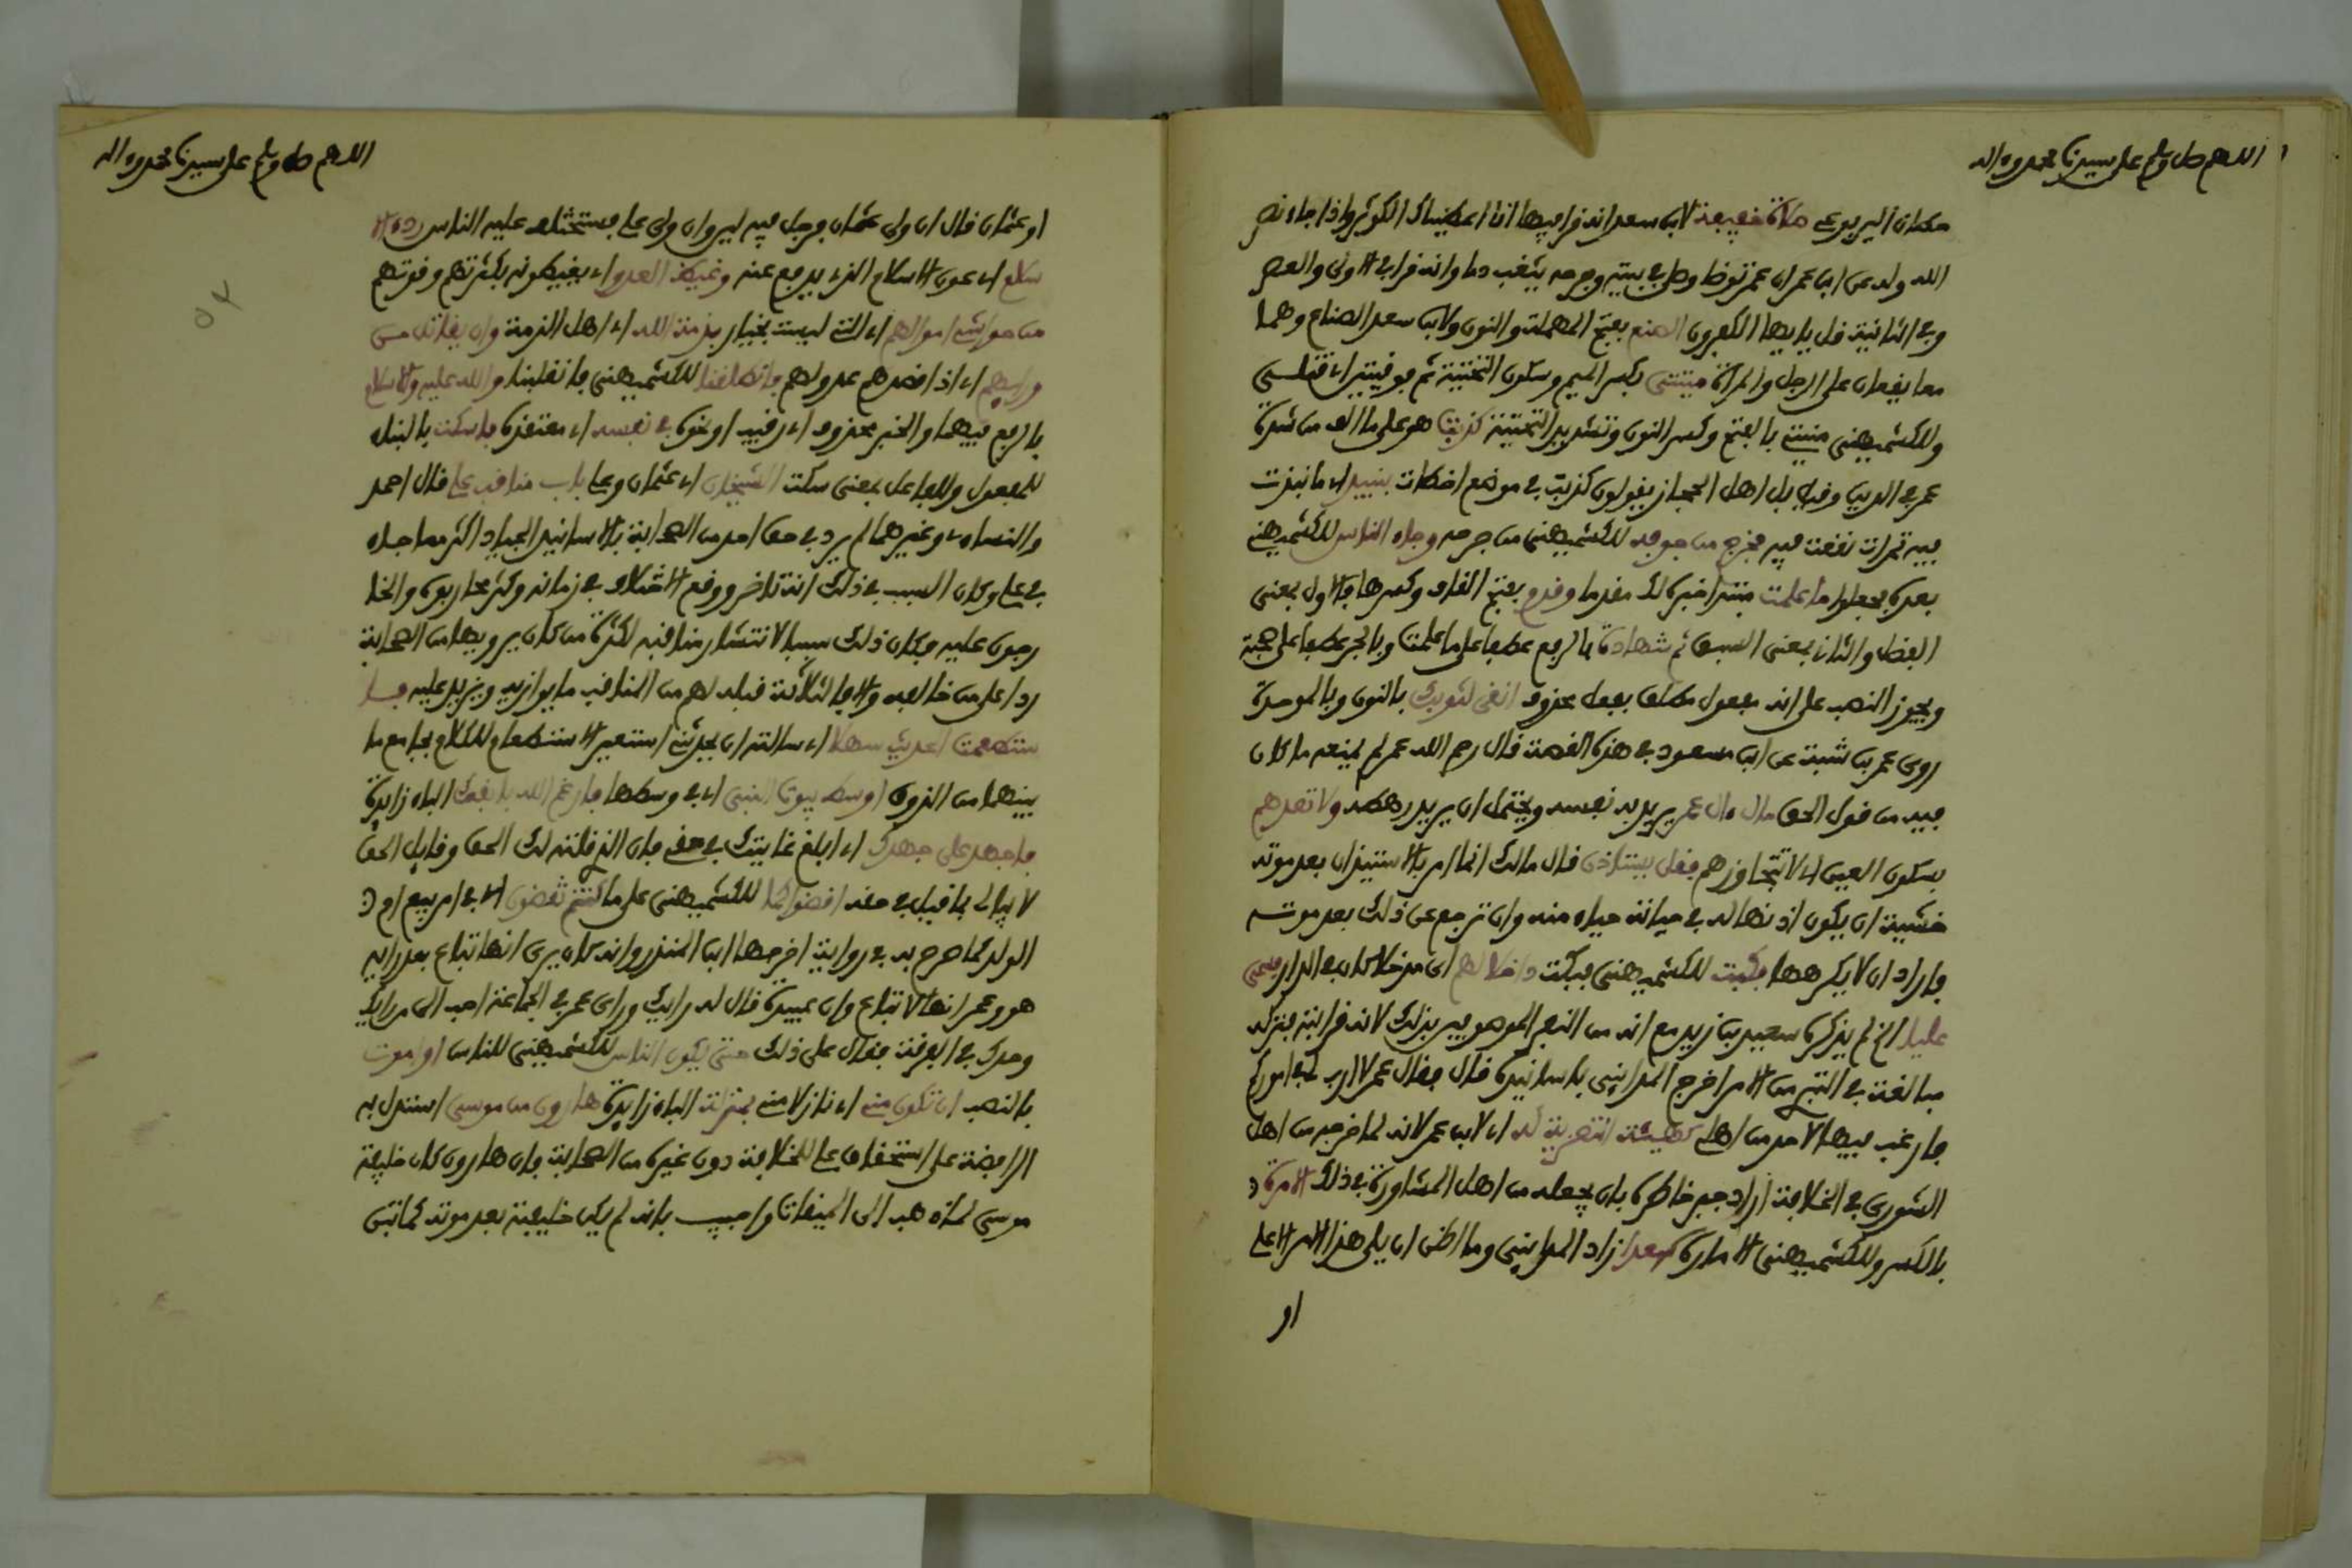 اللهم صل وسلم على سيدنا محمد وءاله
صلاة خفيفة لابن سعد انه قرا فيها انا اعطيناك الكوثر واذا جاء نصر
الله وله عن ابن عمر ان عمر توضا وصلى في بيته وجرحه يثعب دما وانه قرا في الاولى والعصر
وفي الثانية قل يايها الكفرون الصنع بفتح المهملة والنون ولابن سعد الصناع وهما
معا يقعان على الرجل والمرأة ميتتي بكسر الميم وسكون التحتية ثم فوقيتين اي قتلتي
وللكشميهني منيتي بالفتح وكسر النون وتشديد التحتية كذبت هو على ما الف من شدة
عمر في الدين وقيل بل اهل الحجاز يقولون كذبت في موضع اخطات بنبيذ اي ما نبذت
فيه تمرات نقعت فيه فخرج من جوفه للكشميهني من جرحه وجاء الناس للكشميهني
بعده فجعلوا ما علمت مبتدا خبره لك مقدما وقدم بفتح القاف وكسرها فالاول بمعنى
الفضل والثاني بمعنى السبق ثم شهادة بالرفع عطفا على ما علمت وبالجر عطفا على صحبة
ويجوز النصب على انه مفعول مطلق بفعل محذوف انقى لثوبك بالنون وبالموحدة
روى عمر بن شبة عن ابن مسعود في هذه القصة قال رحم الله عمر لم يمنعه ما كان
فيه من قول الحق مال ءال عمر يريد به نفسه ويحتمل ان يريد رهطه ولا تعدهم
بسكون العين اي لا تتجاوزهم فقل يستاذن قال مالك انما امر بالاستيذان بعد موته
خشية ان يكون اذنها له في حياته حياء منه وان ترجع عن ذلك بعد موته
فاراد ان لا يكرهها فمكثت للكشميهني فبكت داخلا لهم اي مدخلا كان في الدار فسمى
عليا الخ لم يذكر سعيد بن زيد مع انه من النفر الموصوفين بذلك لانه قرابته فتركه
مبالغة في التبري من الامر اخرج المدايني باسانيده قال فقال عمر لا ارب لي في اموركم
فارغب فيها لاحد من اهلي كهيئة التعزية له اي لابن عمر لانه لما اخرجه من اهل
الشورى في الخلافة اراد جبر خاطره بان جعله من اهل المشاورة في ذلك الامرة
بالكسر وللكشميهني الامارة سعدا زاد المدايني وما اظن ان يلي هذا الامر الا علي
او
اللهم صل وسلم على سيدنا محمد وءاله
او عثمان قال ان ولي عثمان فرجل فيه لين وان ولي علي فستختلف عليه الناس ردء الا
سلام اي عون الاسلام الذي يدفع عنه وغيظ العدو اي يغيظونه بكثرتهم وقوتهم
من حواشي اموالهم اي التي ليست بخيار بذمة الله اي اهل الذمة وان يقاتل من
ورايهم اي اذا قصدهم عدو لهم فانطلقنا للكشميهني فانقلبنا والله عليه والاسلام
بالرفع فيهما والخبر محذوف اي رقيب او نحوه في نفسه اي معتقده فاسكت بالبناء
للمفعول وللفاعل بمعنى سكت الشيخان اي عثمان وعلي باب مناقب علي قال احمد
والنساءي وغيرهما لم يرد في حق احد من الصحابة بالاسانيد الجياد اكثر مما جاء
في علي وكان السبب في ذلك انه تاخر ووقع الاختلاف في زمانه وكثر محاربوه والخا
رجون عليه فكان ذلك سببا لانتشار مناقبه لكثرة من كان يرويها من الصحابة
ردا على من خالفه والا فالثلاثة قبله لهم من المناقب ما يوازيه ويزيد عليه فا
ستطعمت الحديث سهلا اي سالته ان يحدثني استعير الاستطعام للكلام بجامع ما
بينهما من الذوق اوسط بيوت النبي اي في وسطها فارغم الله بانفك الباء زايدة
فاجهد على جهدك اي ابلغ غايتك في حقي فان الذي قلته لك الحق وقايل الحق
لا يبالي بما قيل في حقه اقضوا كما للكشميهني على ما كنتم تقضون اي في امر بيع ام
الولد كما صرح به في رواية اخرجها ابن المنذر وانه كان يرى انها تباع بعد رايه
هو وعمر انها لا تباع وان عبيدة قال له رايك وراي عمر في الجماعة احب الي من رايك
وحدك في الفرقة فقال على ذلك حتى يكون الناس للكشميهني للناس او اموت
بالنصب ان تكون مني اي نازلا مني بمنزلة الباء زايدة هارون من موسى استدل به
الرافضة على استحقاق علي للخلافة دون غيره من الصحابة فان هارون كان خليفة
موسى لما ذهب الى الميقات واجيب بانه لم يكن خليفة بعد موته لما تبين